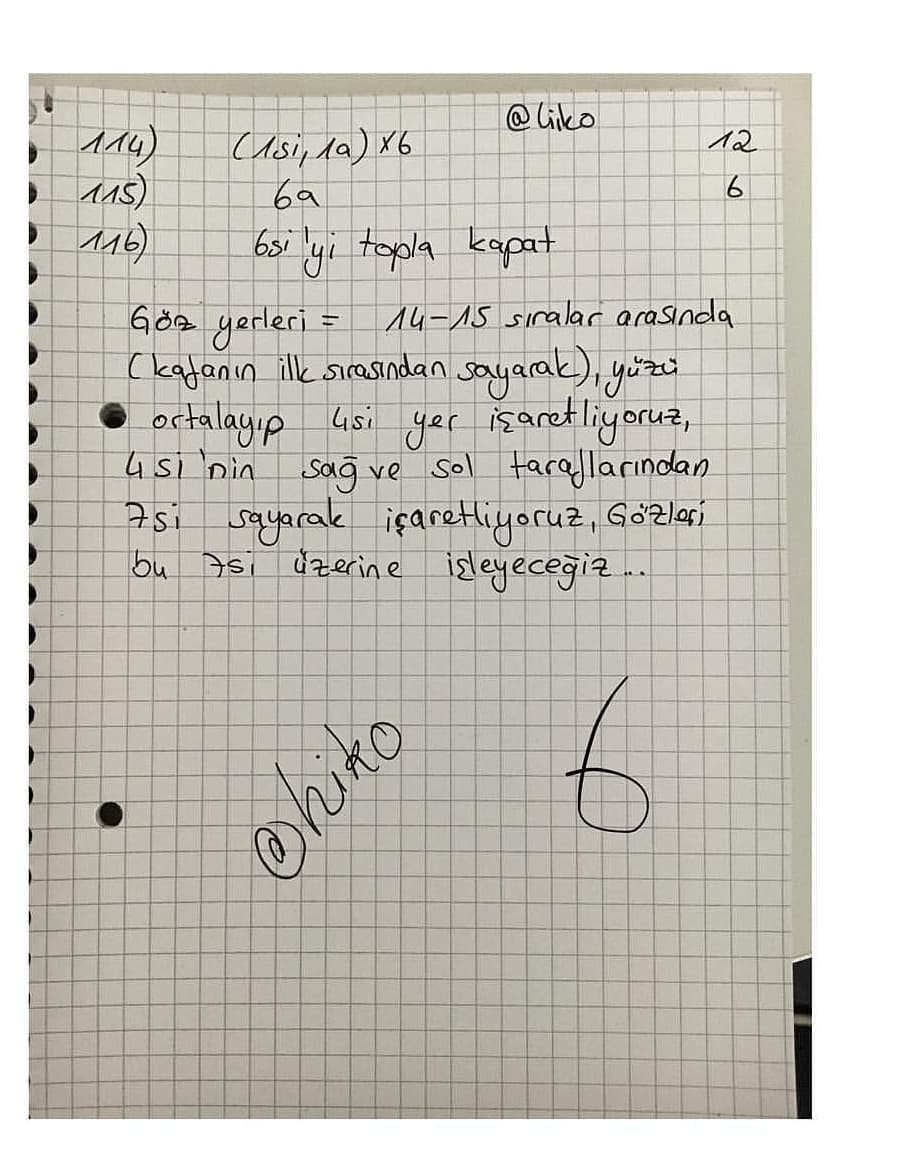 @liko
114) (1si, 1a) x6 12
115) 6a 6
116) 6si'yi topla kapat
Göz yerleri = 14-15 sıralar arasında
(kafanın ilk sırasından sayarak), yüzü
ortalayıp 4si yer işaretliyoruz,
4si'nin sağ ve sol taraflarından
7si sayarak işaretliyoruz, Gözleri
bu 7si üzerine işleyeceğiz...
@hiko
6